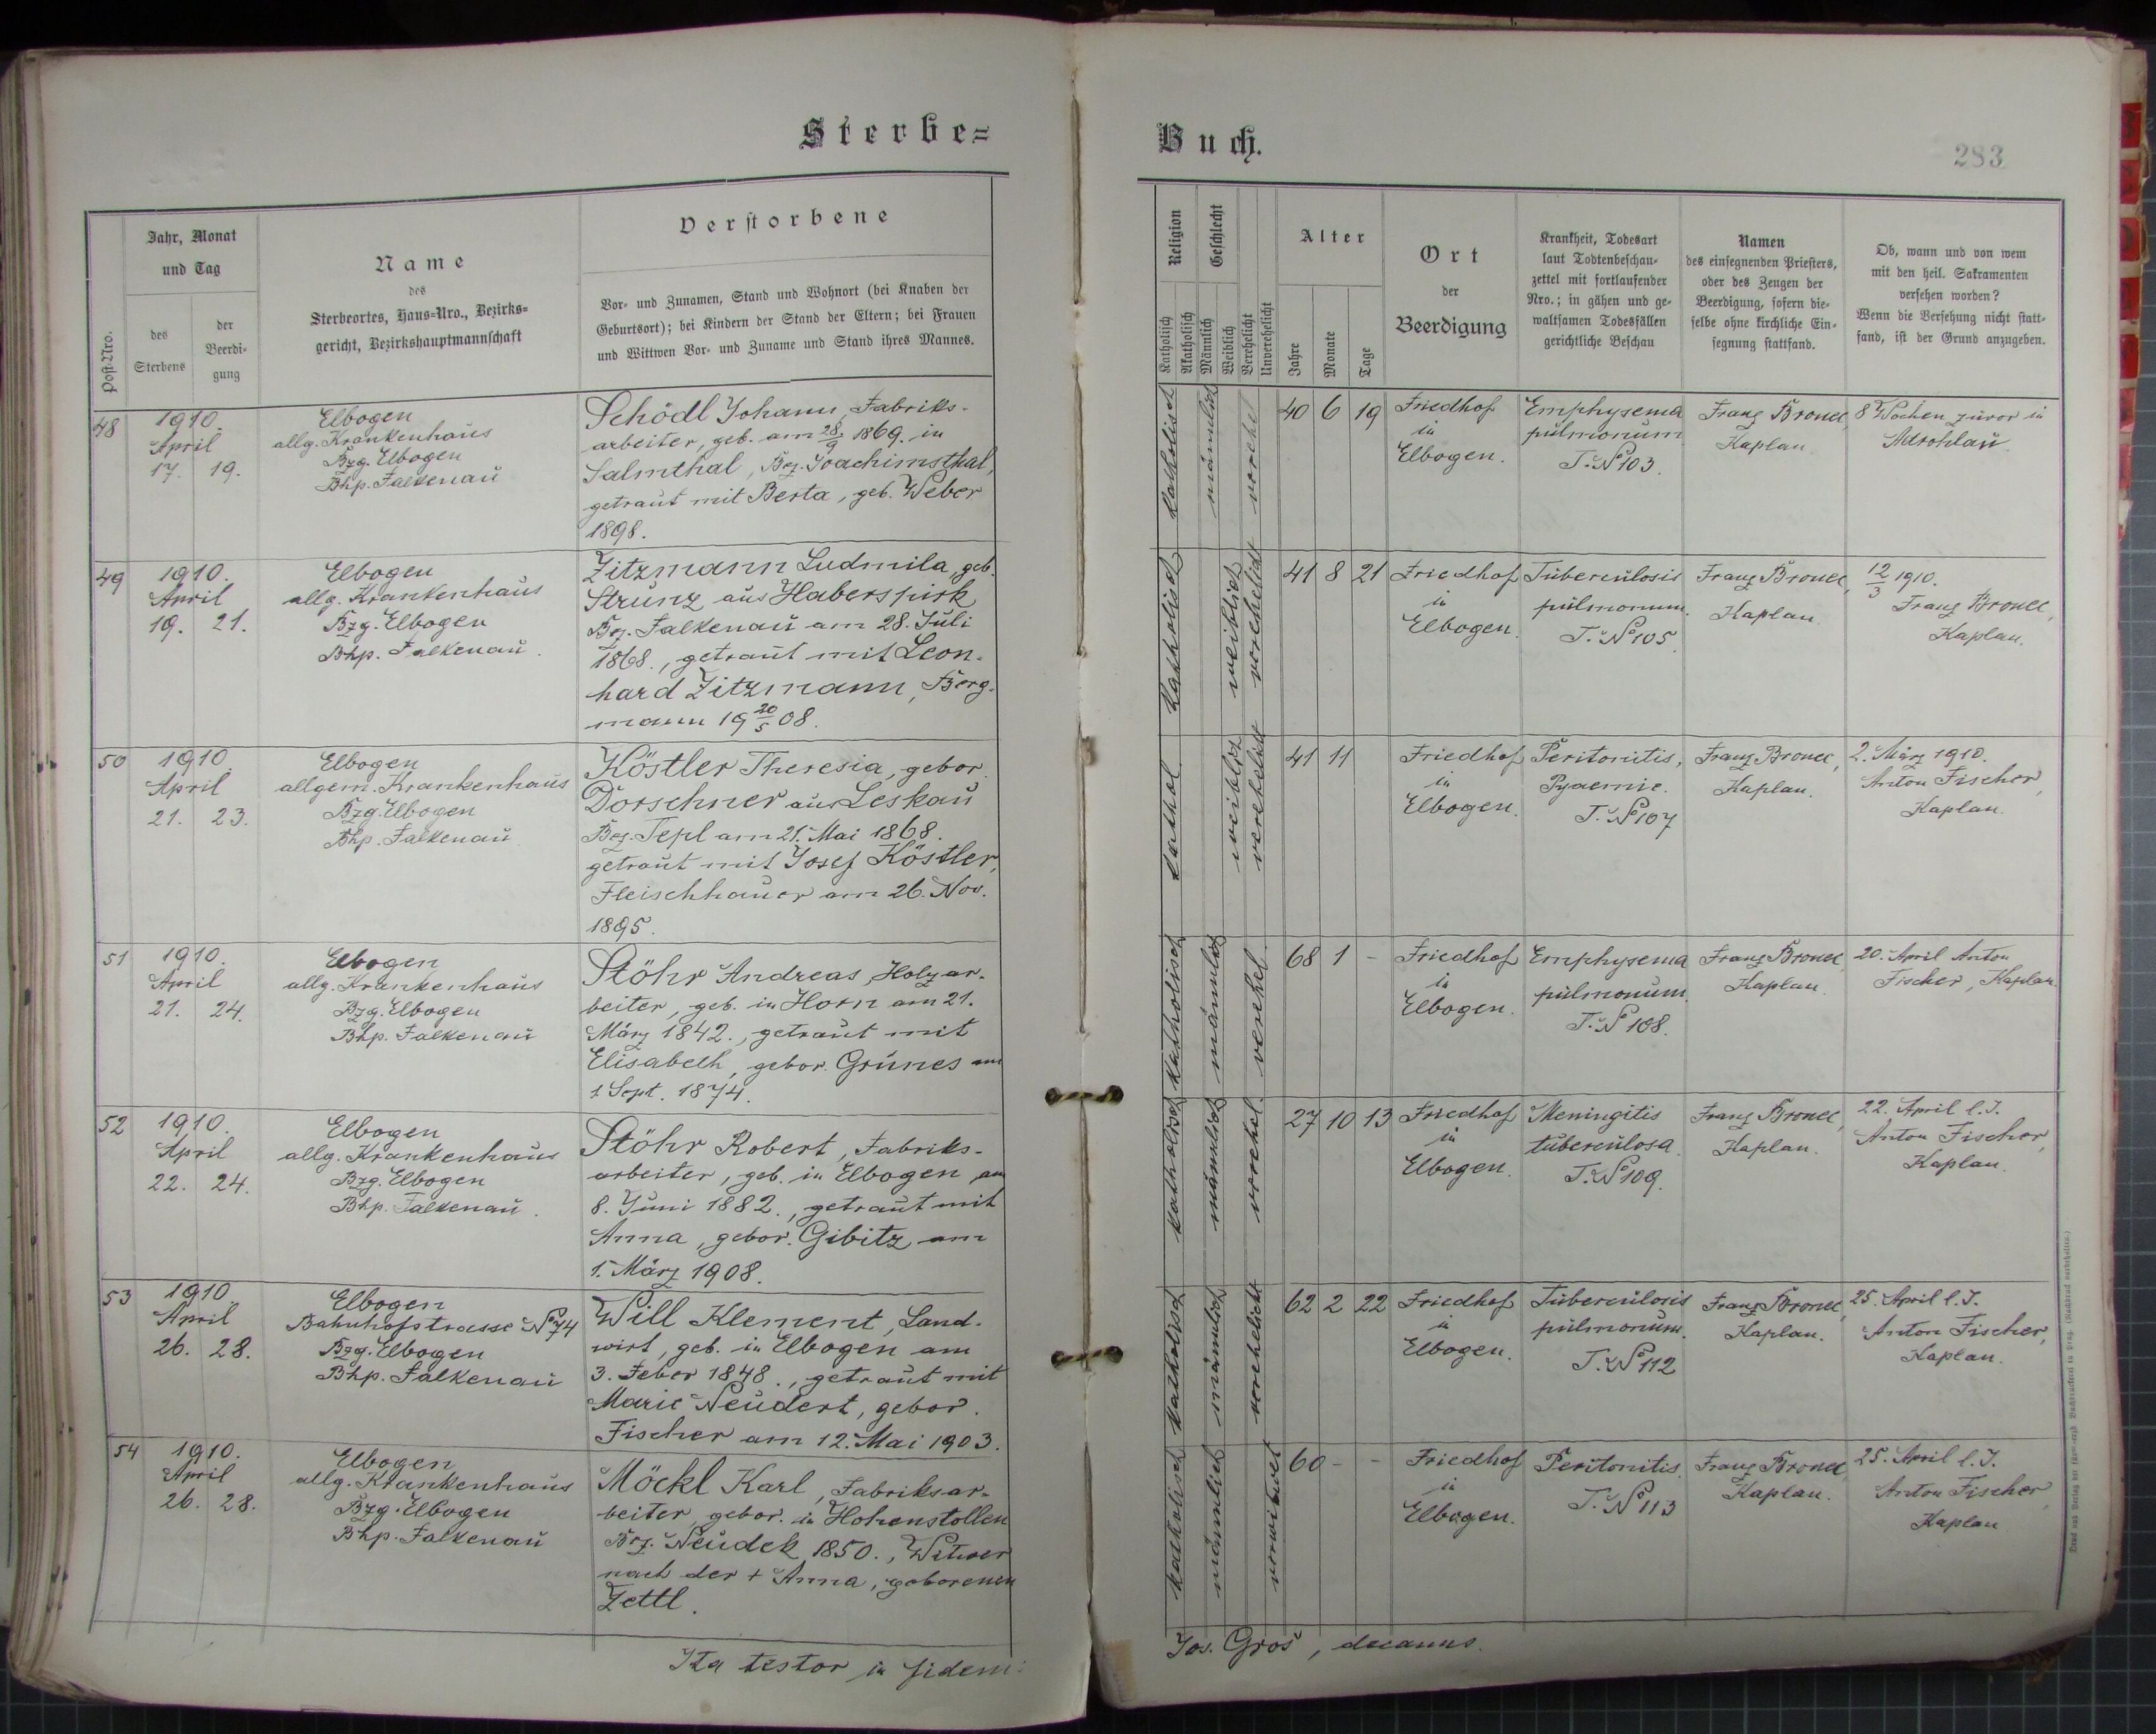 Sterbe=
Buch.
283
Post-Nro.
Jahr, Monat
und Tag
des
Sterbens
der
Beerdi-
gung
Name
des
Sterbeortes, Haus-Nro., Bezirks-
gericht, Bezirkshauptmannschaft
Verstorbene
Vor- und Zunamen, Stand und Wohnort (bei Knaben der
Geburtsort); bei Kindern der Stand der Eltern; bei Frauen
und Wittwen Vor- und Zuname und Stand ihres Mannes.
Religion
Katholisch
Akatholisch
Geschlecht
Männlich
Weiblich
Verehelicht
Unverehelicht
Alter
Jahre
Monate
Tage
Ort
der
Beerdigung
Krankheit, Todesart
laut Todtenbeschau-
zettel mit fortlaufender
Nro.; in gähen und ge-
waltsamen Todesfällen
gerichtliche Beschau
Namen
des einsegnenden Priesters,
oder des Zeugen der
Beerdigung, sofern die-
selbe ohne kirchliche Ein-
segnung stattfand.
Ob, wann und von wem
mit den heil. Sakramenten
versehen worden?
Wenn die Versehung nicht statt-
fand, ist der Grund anzugeben.
48
1910.
April
17. 19.
Elbogen
allg. Krankenhaus
Bzg. Elbogen
Bhp. Falkenau
Schödl Johann, Fabriks-
arbeiter, geb. am 28/9 1869. in
Salmthal, Bez. Joachimsthal,
getraut mit Berta, geb. Weber
1898.
katholisch
männlich
verehel
40 6 19
Friedhof
in
Elbogen.
Emphysema
pulmonum
T. No 103.
Franz Bronec,
Kaplan
8 Wochen zuvor in
Altrohlau
49
1910.
April
19. 21.
Elbogen
allg. Krankenhaus
Bzg. Elbogen
Bhp. Falkenau.
Zitzmann Ludmila, geb.
Strunz aus Haberspirk
Bez. Falkenau am 28. Juli
1868., getraut mit Leon-
hard Zitzmann, Berg-
mann 19 20/5 08.
katholisch
weiblich
verehelicht
41 8 21
Friedhof
in
Elbogen.
Tuberculosis
pulmonum.
T. No 105.
Franz Bronec,
Kaplan
12/3 1910.
Franz Bronec,
Kaplan.
50
1910.
April
21. 23.
Elbogen
allgem. Krankenhaus
Bzg. Elbogen
Bhp. Falkenau
Köstler Theresia, gebor.
Dorschner aus Leskau
Bez. Tepl am 21. Mai 1868.
getraut mit Josef Köstler,
Fleischhauer am 26. Nov.
1895.
kathol.
weiblich
verehelicht
41 11
Friedhof
in
Elbogen.
Peritonitis,
Pyaemie.
T. No 107
Franz Bronec,
Kaplan.
2. März 1910.
Anton Fischer,
Kaplan.
51
1910.
April
21. 24.
Elbogen
allg. Krankenhaus
Bzg. Elbogen
Bhp. Falkenau
Stöhr Andreas, Holzar-
beiter, geb. in Horn am 21.
März 1842., getraut mit
Elisabeth, gebor. Grünes am
1. Sept. 1874.
katholisch
männlich
verehel.
68 1 -
Friedhof
in
Elbogen.
Emphysema
pulmonum.
T. No 108.
Franz Bronec,
Kaplan.
20. April Anton
Fischer, Kaplan.
52
1910.
April
22. 24.
Elbogen
allg. Krankenhaus
Bzg. Elbogen
Bhp. Falkenau.
Stöhr Robert, Fabriks-
arbeiter, geb. in Elbogen am
8. Juni 1882., getraut mit
Anna, gebor. Gibitz am
1. März 1908.
katholisch
männlich
verehel.
27 10 13
Friedhof
in
Elbogen.
Meningitis
tuberculosa.
T. No 109.
Franz Bronec,
Kaplan.
22. April l. J.
Anton Fischer,
Kaplan.
53
1910
April
26. 28.
Elbogen
Bahnhofstrasse No 74
Bzg. Elbogen
Bhp. Falkenau
Will Klement, Land-
wirt, geb. in Elbogen am
3. Feber 1848., getraut mit
Marie Neudert, gebor.
Fischer am 12. Mai 1903.
katholisch
männlich
verehelicht
62 2 22
Friedhof
in
Elbogen.
Tuberculosis
pulmonum.
T. No 112
Franz Bronec,
Kaplan.
25. April l. J.
Anton Fischer,
Kaplan.
54
1910.
April
26. 28.
Elbogen
allg. Krankenhaus
Bzg. Elbogen
Bhp. Falkenau
Möckl Karl, Fabriksar-
beiter gebor. in Hohenstollen
Bez. Neudek 1850., Witwer
nach der + Anna, geborenen
Zettl.
katholisch
männlich
verwitwet
60 - -
Friedhof
in
Elbogen.
Peritonitis.
T. No 113
Franz Bronec,
Kaplan.
25. April l. J.
Anton Fischer,
Kaplan
Ita testor in fidem:
Jos. Gros, decanus.